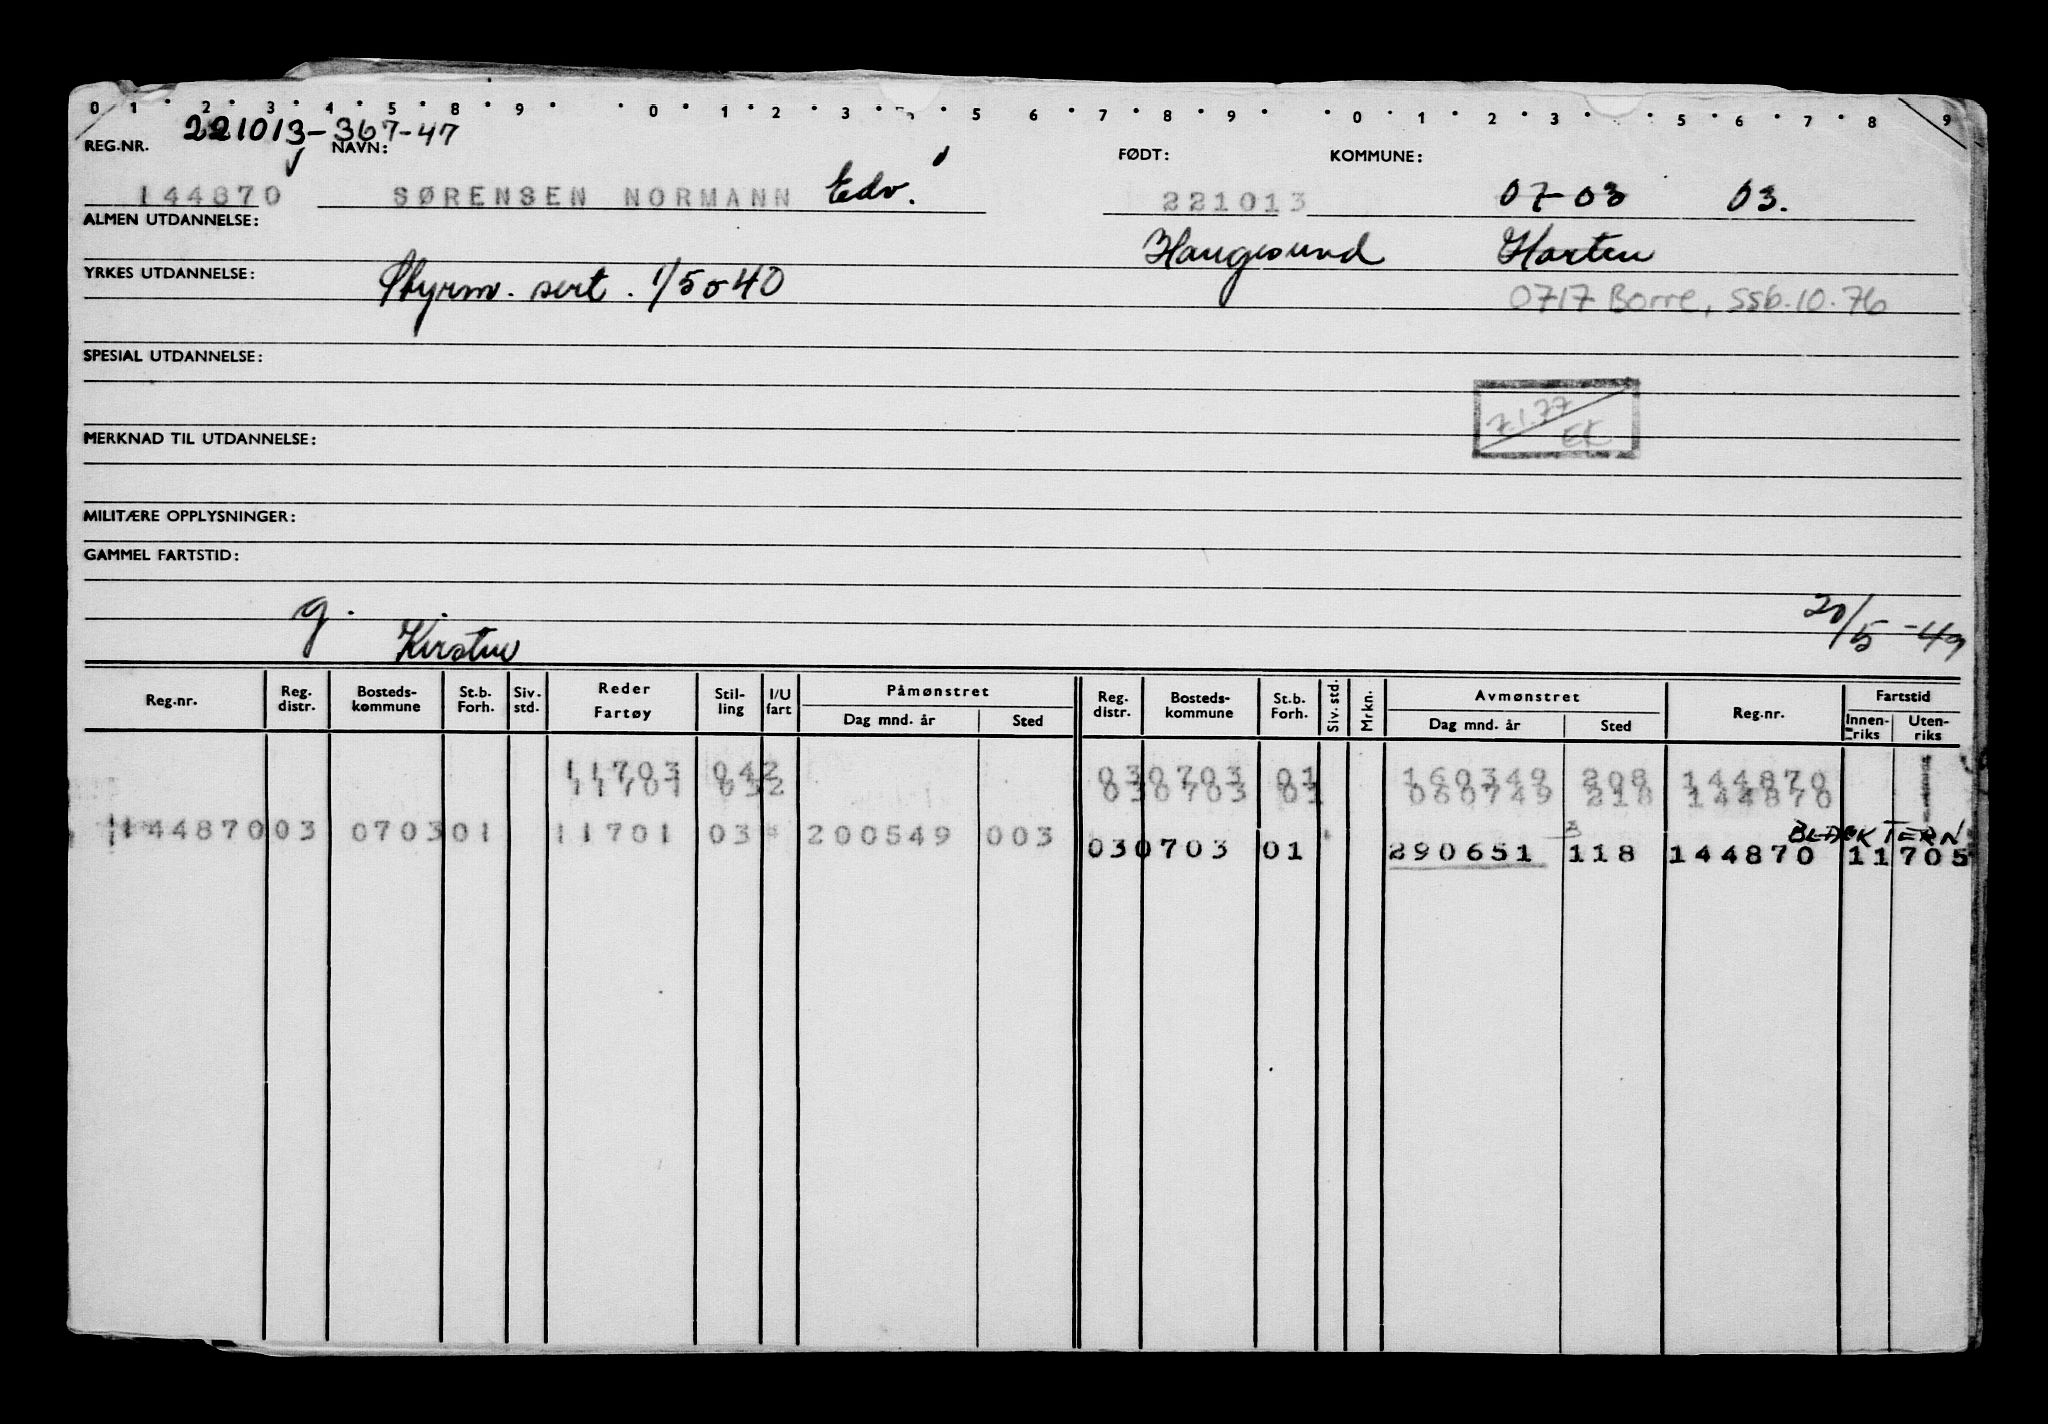 0 1 2 3 4 5 8 9 0 1 2 3 5 6 7 8 9 0 1 2 3 5 6 7 8 9
221013-367-47
REG.NR. NAVN: FØDT: KOMMUNE:
144870 SØRENSEN NORMANN Edv. 221013 07-03 03.
ALMEN UTDANNELSE: Haugesund Horten
YRKES UTDANNELSE: Styrm. sert. 1/5-40
0717 Borre, SSb. 10.76
SPESIAL UTDANNELSE:
7.1.77
EK
MERKNAD TIL UTDANNELSE:
MILITÆRE OPPLYSNINGER:
GAMMEL FARTSTID:
g. Kirsten 20/5-49
Reg.nr. Reg. distr. Bosteds-kommune St.b. Forh. Siv. std. Reder Fartøy Stil-ling I/U fart Påmønstret Dag mnd. år Sted Reg. distr. Bosteds-kommune St.b. Forh. Siv. std. Mrkn. Avmønstret Dag mnd. år Sted Reg.nr. Fartstid Innen-riks Uten-riks
11703 042 03 0703 01 160349 208 144870
11701 032 03 0703 01 080749 218 144870
144870 03 0703 01 11701 03 200549 003
BLACK TERN
03 0703 01 290651 118 144870 11705